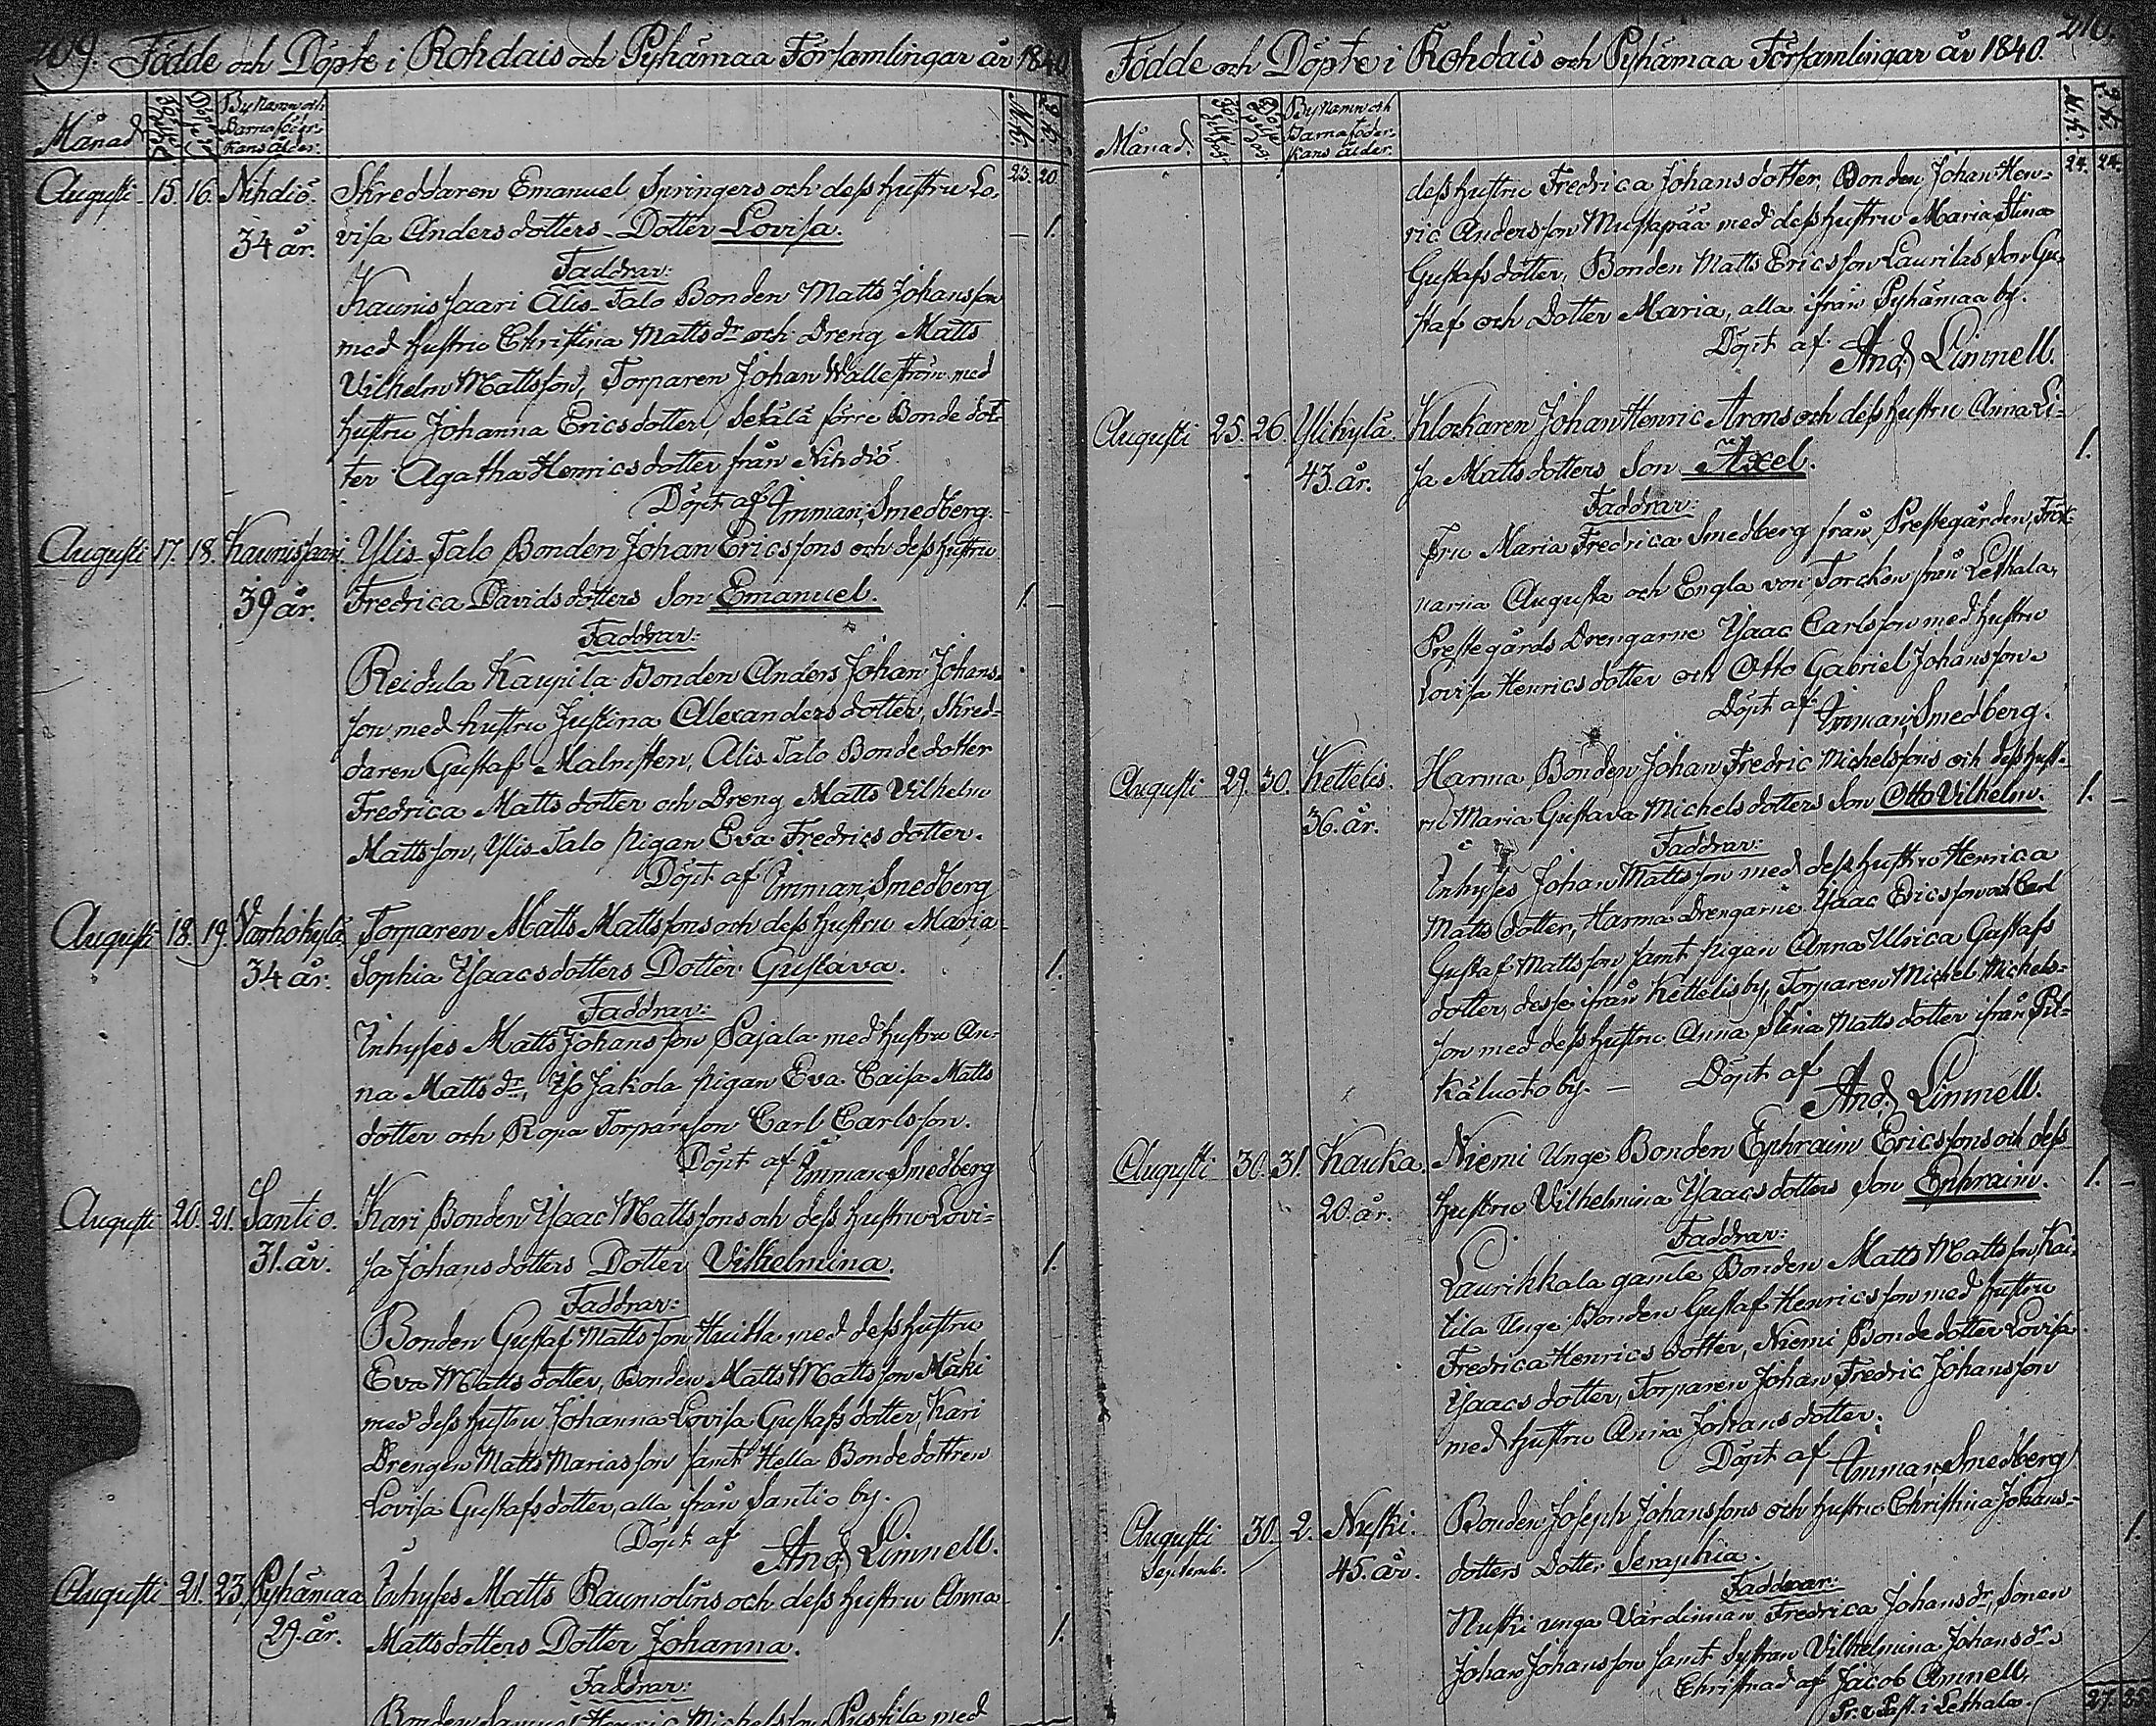 209 Födde och Döpte i Rohdais och Pyhämaa Församlingar år 1840
Månad
By Namn och
Barnaföder-
skans ålder.
M.K.
23. 20.
Augusti 15. 16. Nihdiö. Skreddaren Emanuel Springers och dess hustru Lo-
34 år. visa Andersdotters Dotter Lovisa. – 1.
Faddrar:
Kaunissaari Alis-Talo Bonden Matts Johansson
med hustru Christina Matts dr och Dreng Matts
Vilhelm Mattsson, Torparen Johan Wallström med
hustru Johanna Ericsdotter, Setälä förre Bonde dot-
ter Agatha Henricsdotter från Nihdiö.
Döpt af Imman: Smedberg.
Augusti 17. 18. Kaunissaari. Ylis-Talo Bonden Johan Ericssons och dess hustru
39 år. Fredrica Davidsdotters Son Emanuel. 1. –
Faddrar:
Reidula Kaupila Bonden Anders Johan Johans-
son med hustru Justina Alexandersdotter, Skred-
daren Gustaf Malmsten, Alis-Talo Bondedotter
Fredrica Mattsdotter och Dreng Matts Vilhelm
Mattsson, Ylis-Talo pigan Eva Fredricsdotter.
Döpt af Imman: Smedberg
Augusti 18. 19. Vanhakylä Torparen Matts Mattssons och dess hustru Maria
34 år. Sophia Ysaacsdotters Dotter Gustava. 1.
Faddrar:
Inhyses Matts Johansson Pajala med hustru An-
na Matts dr, Iso Jakola pigan Eva Caisa Matts
dotter och Ropa Torpareson Carl Carlsson.
Döpt af Imman: Smedberg
Augusti 20. 21. Santio. Kari Bonden Ysaac Mattssons och dess hustru Lovi-
31. år. sa Johansdotters Dotter Vilhelmina. 1.
Faddrar:
Bonden Gustaf Mattsson Huikka med dess hustru
Eva Mattsdotter, Bonden Matts Mattsson Mäki
med dess hustru Johanna Lovisa Gustafsdotter, Kari
Drengen Matts Mariasson samt Hella Bondedottren
Lovisa Gustafsdotter, alla ifrån Santio by.
Döpt af And. Linnell.
Augusti 21. 23. Pyhämaa Inhyses Matts Raumolins och dess hustru Anna
29. år. Mattsdotters Dotter Johanna. 1.
Faddrar:
Bonden Samuel Henric Michelsson Pustila med
210.
Födde och Döpte i Rohdais och Pyhämaa Församlingar år 1840.
Månad.
By Namn och
Barnaföder-
skans ålder.
M.K.
24. 24.
dess hustru Fredrica Johansdotter, Bonden Johan Hen-
ric Andersson Mustapää med dess hustru Maria Stina
Gustafsdotter, Bonden Matts Ericsson Laurilas Son Gu-
staf och Dotter Maria, alla ifrån Pyhämaa by.
Döpt af And. Linnell.
Augusti 25. 26. Ylikylä. Klockaren Johan Henric Arons och dess hustru Anna Li-
43. år. sa Mattsdotters Son Axel. 1.
Faddrar:
Fru Maria Fredrica Smedberg från Prestegården, Frök-
narna Augusta och Engla von Torcken från Lethala,
Prestegårds Drengarne Ysaac Carlsson med hustru
Lovisa Henricsdotter och Otto Gabriel Johansson.
Döpt af Imman: Smedberg.
Augusti 29. 30. Kettelis. Harma Bonden Johan Fredric Michelssons och dess hust-
36. år. ru Maria Gustava Michelsdotters Son Otto Vilhelm. 1. –
Faddrar:
Inhyses Johan Mattsson med dess hustru Henrica
Mattsdotter, Harma Drengarne Ysaac Ericsson och Carl
Gustaf Mattsson samt pigan Anna Ulrica Gustafs
dotter, desse ifrån Kettelis by, Torparen Michel Michels-
son med dess hustru Anna Stina Mattsdotter ifrån Pit-
käluoto by. – Döpt af
And. Linnell.
Augusti 30. 31. Kauka. Niemi Unge Bonden Ephraim Ericssons och dess
20. år. hustru Vilhelmina Ysaacsdotters Son Ephraim. 1. –
Faddrar:
Laurikkala gamle Bonden Matts Mattsson, Kai-
tila Unge Bonden Gustaf Henricsson med hustru
Fredrica Henricsdotter, Niemi Bondedotter Lovisa
Ysaacsdotter, Torparen Johan Fredric Johansson
med hustru Anna Johansdotter.
Döpt af Imman: Smedberg
Augusti 30. 2. Nuski. Bonden Joseph Johanssons och hustru Christina Johans-
Septemb. 45. år. dotters Dotter Seraphia. 1.
Faddrar:
Nuski unga Värdinnan Fredrica Johans dr, Sonen
Johan Johansson samt Systran Vilhelmina Johans dr
Christnad af Jacob Amnell,
Pr. o Past. i Lethala.
27. 25.